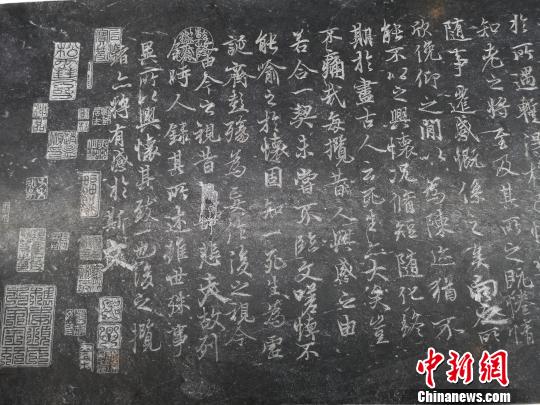 於所遇輒得
知老之将至及其所之既惓情
随事遷感慨係之矣向之所
欣俛仰之閒以為陳迹猶不
能不以之興懷況脩短随化終
期於盡古人云死生亦大矣豈
不痛哉每攬昔人興感之由
若合一契未嘗不臨文嗟悼不
能喻之於懷固知一死生為虛
誕齊彭殤為妄作後之視今
亦由今之視昔悲夫故列
敘時人錄其所述雖世殊事
異所以興懷其致一也後之攬
者亦將有感於斯文
中新网
www.chinanews.com